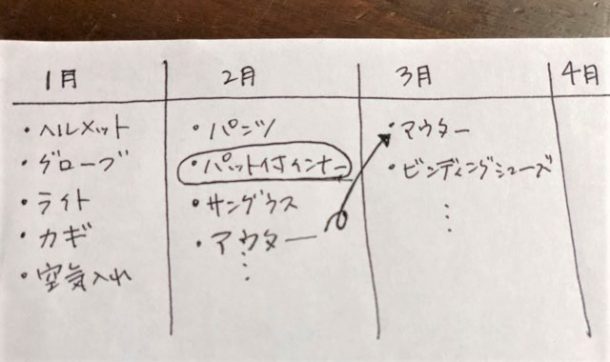 1月
・ヘルメット
・グローブ
・ライト
・カギ
・空気入れ
2月
・パンツ
・パット付インナー
・サングラス
・アウター
⋮
3月
・アウター
・ビンディングシューズ
⋮
4月